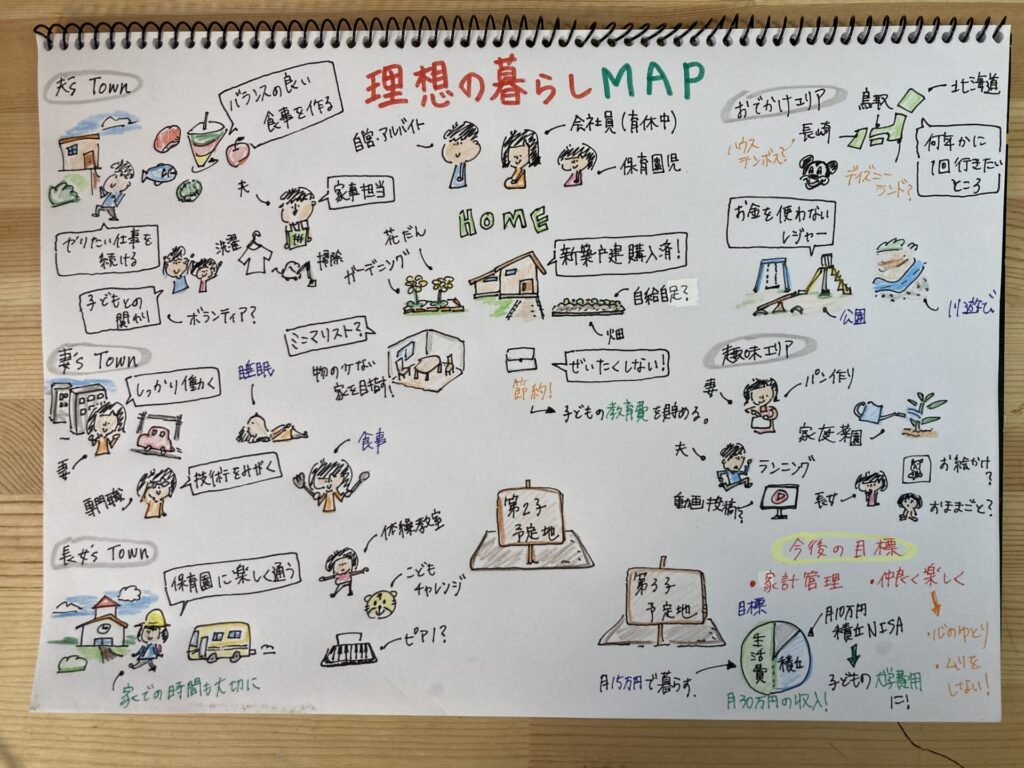 理想の暮らしMAP
夫's Town
バランスの良い
食事を作る
やりたい仕事を
続ける
子どもとの
関わり
ボランティア?
夫
家事担当
洗濯
掃除
自営・アルバイト
会社員(育休中)
保育園児
HOME
花だん
ガーデニング
新築戸建購入済!
自給自足?
畑
ミニマリスト?
物の少ない
家を目指す!
ぜいたくしない!
節約!
子どもの教育費を貯める。
おでかけエリア
北海道
鳥取
長崎
ハウス
テンボス?
ディズニー
ランド?
何年かに
1回行きたい
ところ
お金を使わない
レジャー
公園
川遊び
妻's Town
しっかり働く
妻
睡眠
専門職
技術をみがく
食事
趣味エリア
妻
パン作り
家庭菜園
夫
ランニング
動画投稿?
長女
お絵かき
?
おままごと?
長女's Town
保育園に楽しく通う
家での時間も大切に
体操教室
こども
チャレンジ
ピアノ?
第2子
予定地
第3子
予定地
今後の目標
・家計管理
・仲良く楽しく
・心のゆとり
・ムリを
しない!
目標
生活費
積立
月10万円
積立NISA
子どもの大学費用
に!
月15万円で暮らす。
月30万円の収入!